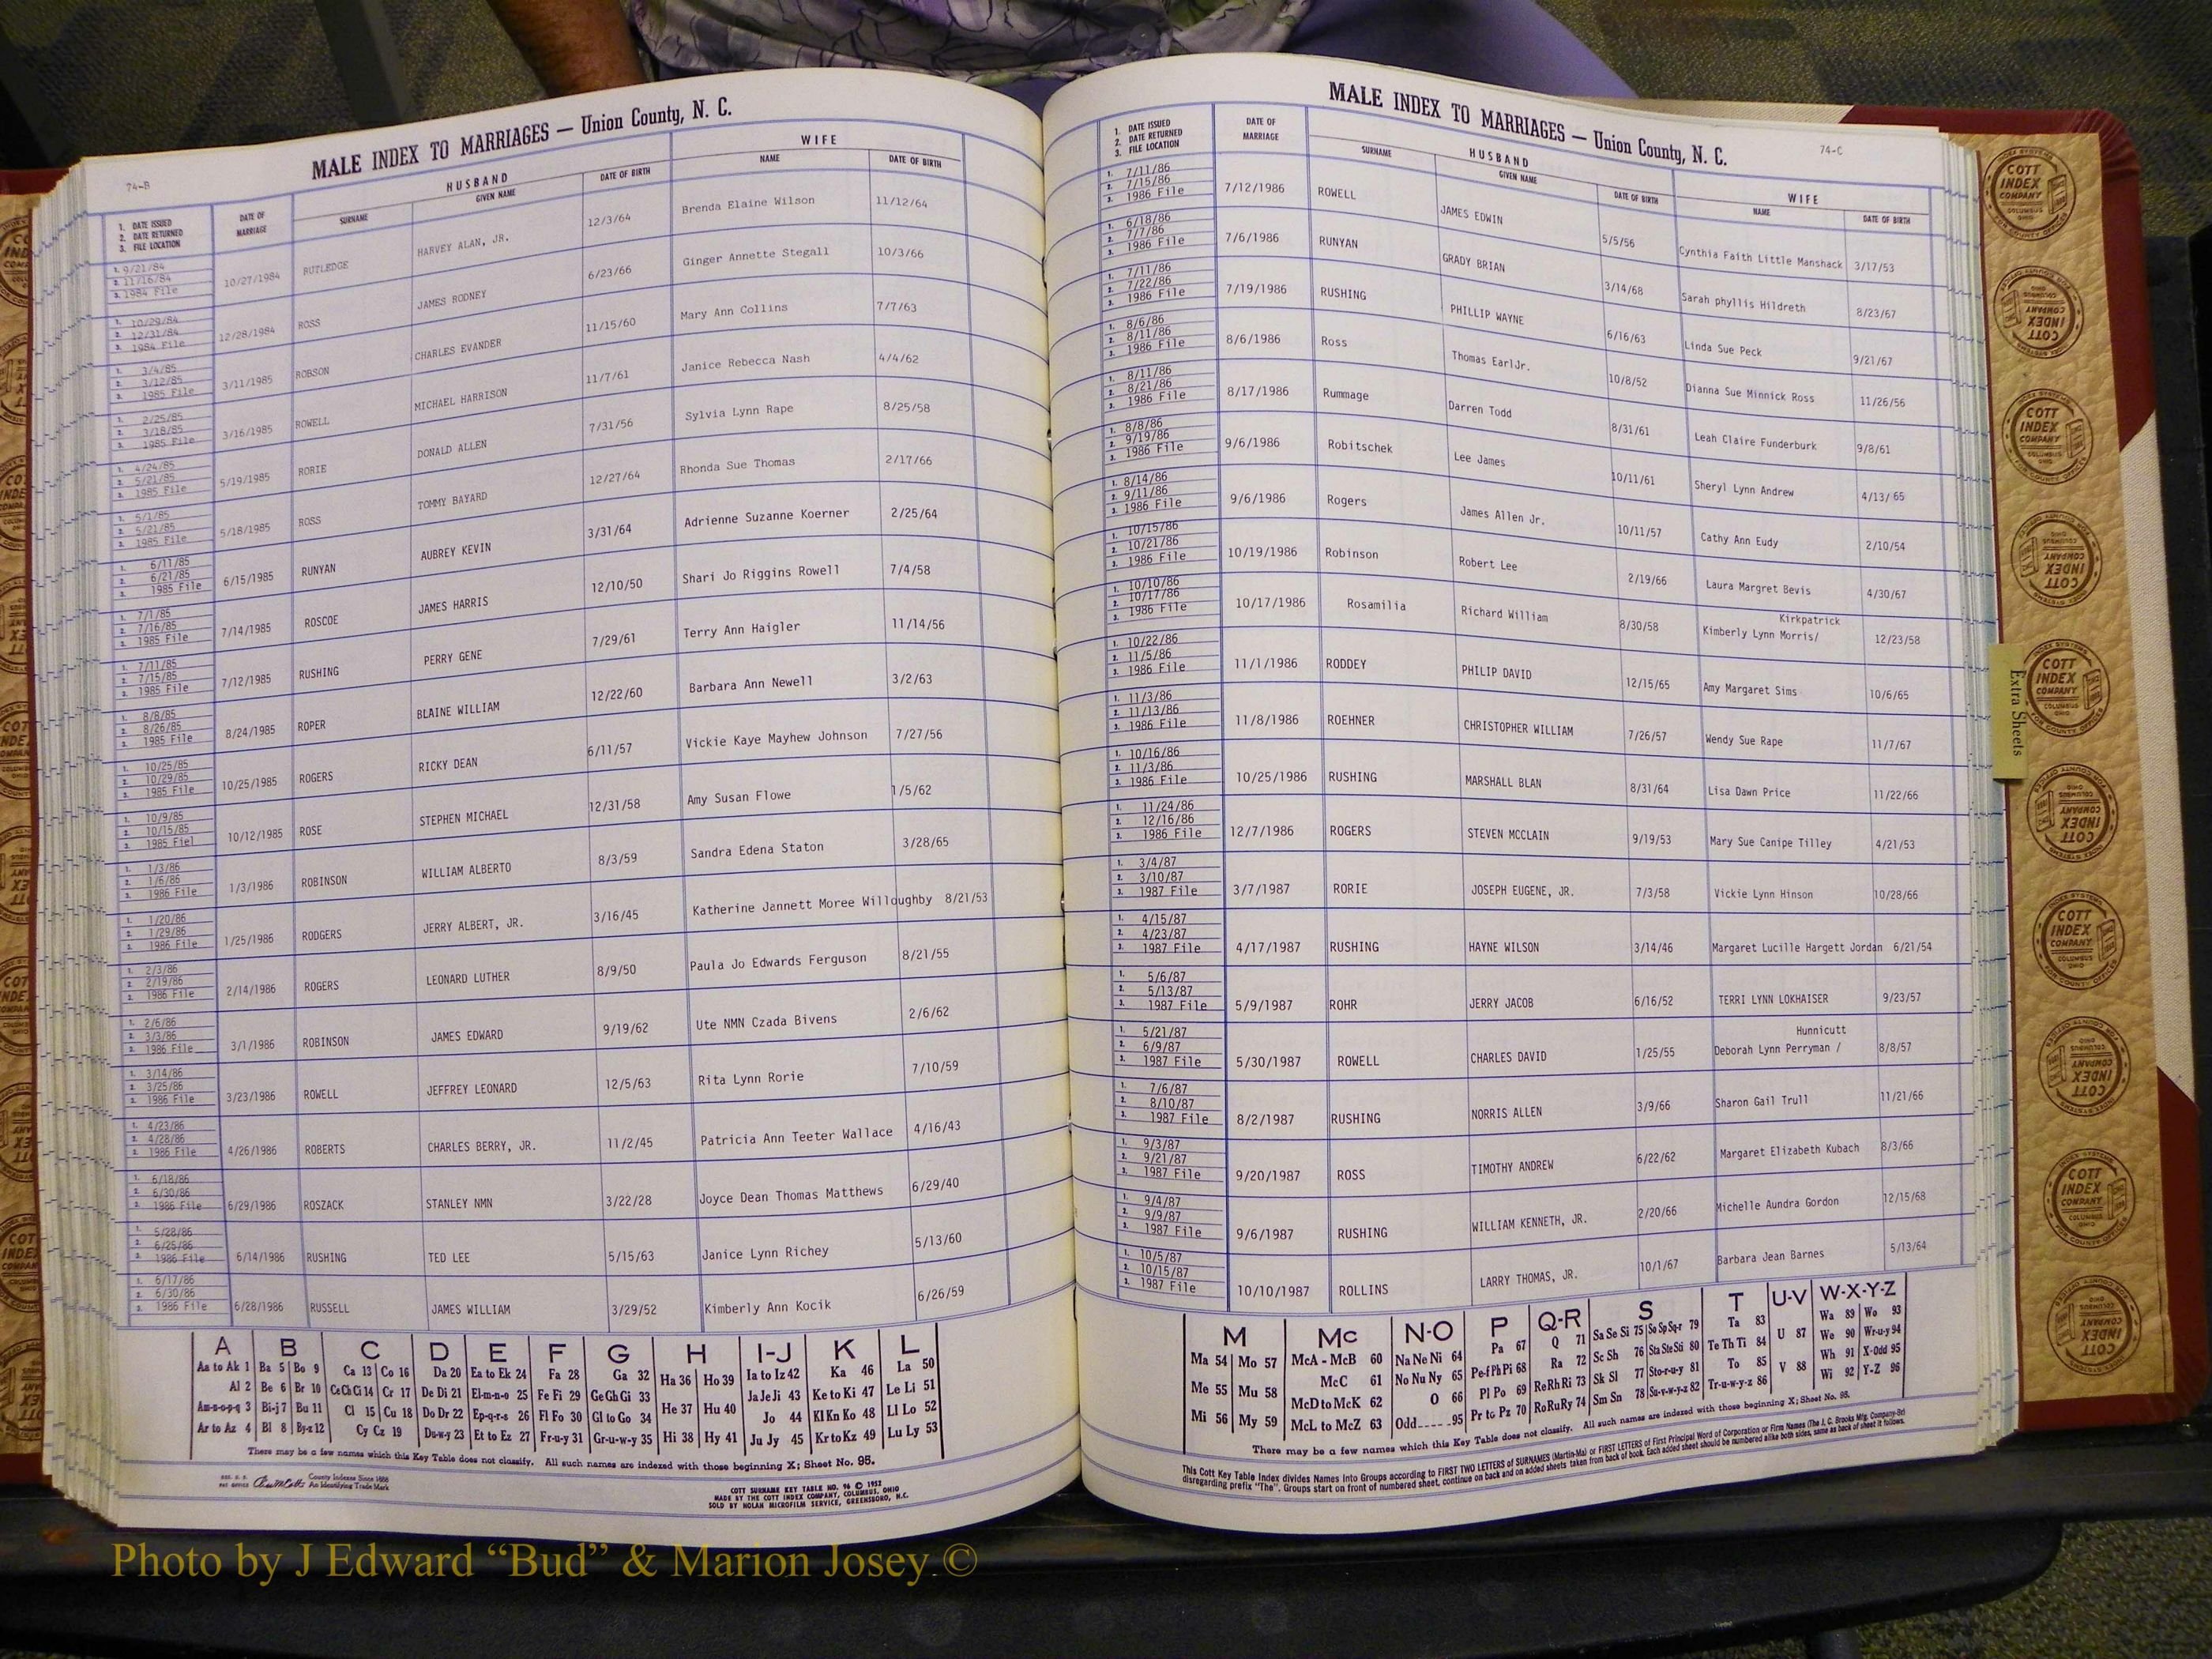 MALE INDEX TO MARRIAGES — Union County, N. C.
74-B
HUSBAND
WIFE
1. DATE ISSUED
2. DATE RETURNED
3. FILE LOCATION
DATE OF MARRIAGE
SURNAME
GIVEN NAME
DATE OF BIRTH
NAME
DATE OF BIRTH
1. 9/21/84
2. 11/16/84
3. 1984 File
10/27/1984 RUTLEDGE HARVEY ALAN, JR. 12/3/64 Brenda Elaine Wilson 11/12/64
1. 10/29/84
2. 12/31/84
3. 1984 File
12/28/1984 ROSS JAMES RODNEY 6/23/66 Ginger Annette Stegall 10/3/66
1. 3/4/85
2. 3/12/85
3. 1985 File
3/11/1985 ROBSON CHARLES EVANDER 11/15/60 Mary Ann Collins 7/7/63
1. 2/25/85
2. 3/18/85
3. 1985 File
3/16/1985 ROWELL MICHAEL HARRISON 11/7/61 Janice Rebecca Nash 4/4/62
1. 4/24/85
2. 5/21/85
3. 1985 File
5/19/1985 RORIE DONALD ALLEN 7/31/56 Sylvia Lynn Rape 8/25/58
1. 5/1/85
2. 5/21/85
3. 1985 File
5/18/1985 ROSS TOMMY BAYARD 12/27/64 Rhonda Sue Thomas 2/17/66
1. 6/11/85
2. 6/21/85
3. 1985 File
6/15/1985 RUNYAN AUBREY KEVIN 3/31/64 Adrienne Suzanne Koerner 2/25/64
1. 7/1/85
2. 7/16/85
3. 1985 File
7/14/1985 ROSCOE JAMES HARRIS 12/10/50 Shari Jo Riggins Rowell 7/4/58
1. 7/11/85
2. 7/15/85
3. 1985 File
7/12/1985 RUSHING PERRY GENE 7/29/61 Terry Ann Haigler 11/14/56
1. 8/8/85
2. 8/26/85
3. 1985 File
8/24/1985 ROPER BLAINE WILLIAM 12/22/60 Barbara Ann Newell 3/2/63
1. 10/25/85
2. 10/29/85
3. 1985 File
10/25/1985 ROGERS RICKY DEAN 6/11/57 Vickie Kaye Mayhew Johnson 7/27/56
1. 10/9/85
2. 10/15/85
3. 1985 Fiel
10/12/1985 ROSE STEPHEN MICHAEL 12/31/58 Amy Susan Flowe 1/5/62
1. 1/3/86
2. 1/6/86
3. 1986 File
1/3/1986 ROBINSON WILLIAM ALBERTO 8/3/59 Sandra Edena Staton 3/28/65
1. 1/20/86
2. 1/29/86
3. 1986 File
1/25/1986 RODGERS JERRY ALBERT, JR. 3/16/45 Katherine Jannett Moree Willoughby 8/21/53
1. 2/3/86
2. 2/19/86
3. 1986 File
2/14/1986 ROGERS LEONARD LUTHER 8/9/50 Paula Jo Edwards Ferguson 8/21/55
1. 2/6/86
2. 3/3/86
3. 1986 File
3/1/1986 ROBINSON JAMES EDWARD 9/19/62 Ute NMN Czada Bivens 2/6/62
1. 3/14/86
2. 3/25/86
3. 1986 File
3/23/1986 ROWELL JEFFREY LEONARD 12/5/63 Rita Lynn Rorie 7/10/59
1. 4/23/86
2. 4/28/86
3. 1986 File
4/26/1986 ROBERTS CHARLES BERRY, JR. 11/2/45 Patricia Ann Teeter Wallace 4/16/43
1. 6/18/86
2. 6/30/86
3. 1986 File
6/29/1986 ROSZACK STANLEY NMN 3/22/28 Joyce Dean Thomas Matthews 6/29/40
1. 5/28/86
2. 6/25/86
3. 1986 File
6/14/1986 RUSHING TED LEE 5/15/63 Janice Lynn Richey 5/13/60
1. 6/17/86
2. 6/30/86
3. 1986 File
6/28/1986 RUSSELL JAMES WILLIAM 3/29/52 Kimberly Ann Kocik 6/26/59
A B C D E F G H I-J K L
Aa to Ak 1 Ba 5 Bo 9 Ca 13 Co 16 Da 20 Ea to Ek 24 Fa 28 Ga 32 Ha 36 Ho 39 Ia to Iz 42 Ka 46 La 50
Al 2 Be 6 Br 10 Ce Ch Ci 14 Cr 17 De Di 21 El-m-n-o 25 Fe Fi 29 Ge Gh Gi 33 He 37 Hu 40 Ja Je Ji 43 Ke to Ki 47 Le Li 51
Am-n-o-p-q 3 Bi-j 7 Bu 11 Cl 15 Cu 18 Do Dr 22 Ep-q-r-s 26 Fl Fo 30 Gl to Go 34 Jo 44 Kl Kn Ko 48 Ll Lo 52
Ar to Az 4 Bl 8 By-z 12 Cy Cz 19 Du-w-y 23 Et to Ez 27 Fr-u-y 31 Gr-u-w-y 35 Hi 38 Hy 41 Ju Jy 45 Kr to Kz 49 Lu Ly 53
There may be a few names which this Key Table does not classify. All such names are indexed with those beginning X; Sheet No. 95.
County Indexes Since 1888
An Identifying Trade Mark
COTT SURNAME KEY TABLE NO. 96 © 1952
MADE BY THE COTT INDEX COMPANY, COLUMBUS, OHIO
SOLD BY NOLAN MICROFILM SERVICE, GREENSBORO, N.C.
MALE INDEX TO MARRIAGES — Union County, N. C.
74-C
HUSBAND
WIFE
1. DATE ISSUED
2. DATE RETURNED
3. FILE LOCATION
DATE OF MARRIAGE
SURNAME
GIVEN NAME
DATE OF BIRTH
NAME
DATE OF BIRTH
1. 7/11/86
2. 7/15/86
3. 1986 File
7/12/1986 ROWELL JAMES EDWIN 5/5/56 Cynthia Faith Little Manshack 3/17/53
1. 6/18/86
2. 7/7/86
3. 1986 File
7/6/1986 RUNYAN GRADY BRIAN 3/14/68 Sarah phyllis Hildreth 8/23/67
1. 7/11/86
2. 7/22/86
3. 1986 File
7/19/1986 RUSHING PHILLIP WAYNE 6/16/63 Linda Sue Peck 9/21/67
1. 8/6/86
2. 8/11/86
3. 1986 File
8/6/1986 Ross Thomas EarlJr. 10/8/52 Dianna Sue Minnick Ross 11/26/56
1. 8/11/86
2. 8/21/86
3. 1986 File
8/17/1986 Rummage Darren Todd 8/31/61 Leah Claire Funderburk 9/8/61
1. 8/8/86
2. 9/19/86
3. 1986 File
9/6/1986 Robitschek Lee James 10/11/61 Sheryl Lynn Andrew 4/13/65
1. 8/14/86
2. 9/11/86
3. 1986 File
9/6/1986 Rogers James Allen Jr. 10/11/57 Cathy Ann Eudy 2/10/54
1. 10/15/86
2. 10/21/86
3. 1986 File
10/19/1986 Robinson Robert Lee 2/19/66 Laura Margret Bevis 4/30/67
1. 10/10/86
2. 10/17/86
3. 1986 File
Kirkpatrick
10/17/1986 Rosamilia Richard William 8/30/58 Kimberly Lynn Morris/ 12/23/58
1. 10/22/86
2. 11/5/86
3. 1986 File
11/1/1986 RODDEY PHILIP DAVID 12/15/65 Amy Margaret Sims 10/6/65
1. 11/3/86
2. 11/13/86
3. 1986 File
11/8/1986 ROEHNER CHRISTOPHER WILLIAM 7/26/57 Wendy Sue Rape 11/7/67
1. 10/16/86
2. 11/3/86
3. 1986 File
10/25/1986 RUSHING MARSHALL BLAN 8/31/64 Lisa Dawn Price 11/22/66
1. 11/24/86
2. 12/16/86
3. 1986 File
12/7/1986 ROGERS STEVEN MCCLAIN 9/19/53 Mary Sue Canipe Tilley 4/21/53
1. 3/4/87
2. 3/10/87
3. 1987 File
3/7/1987 RORIE JOSEPH EUGENE, JR. 7/3/58 Vickie Lynn Hinson 10/28/66
1. 4/15/87
2. 4/23/87
3. 1987 File
4/17/1987 RUSHING HAYNE WILSON 3/14/46 Margaret Lucille Hargett Jordan 6/21/54
1. 5/6/87
2. 5/13/87
3. 1987 File
5/9/1987 ROHR JERRY JACOB 6/16/52 TERRI LYNN LOKHAISER 9/23/57
1. 5/21/87
2. 6/9/87
3. 1987 File
Hunnicutt
5/30/1987 ROWELL CHARLES DAVID 1/25/55 Deborah Lynn Perryman / 8/8/57
1. 7/6/87
2. 8/10/87
3. 1987 File
8/2/1987 RUSHING NORRIS ALLEN 3/9/66 Sharon Gail Trull 11/21/66
1. 9/3/87
2. 9/21/87
3. 1987 File
9/20/1987 ROSS TIMOTHY ANDREW 6/22/62 Margaret Elizabeth Kubach 8/3/66
1. 9/4/87
2. 9/9/87
3. 1987 File
9/6/1987 RUSHING WILLIAM KENNETH, JR. 2/20/66 Michelle Aundra Gordon 12/15/68
1. 10/5/87
2. 10/15/87
3. 1987 File
10/10/1987 ROLLINS LARRY THOMAS, JR. 10/1/67 Barbara Jean Barnes 5/13/64
M Mc N-O P Q-R S T U-V W-X-Y-Z
Ma 54 Mo 57 McA - McB 60 Na Ne Ni 64 Pa 67 Q 71 Sa Se Si 75 So Sp Sq-r 79 Ta 83 U 87 Wa 89 Wo 93
Me 55 Mu 58 McC 61 No Nu Ny 65 Pe-f Ph Pi 68 Ra 72 Sc Sh 76 Sta Ste Sti 80 Te Th Ti 84 V 88 We 90 Wr-u-y 94
McD to McK 62 O 66 Pl Po 69 Re Rh Ri 73 Sk Sl 77 Sto-r-u-y 81 To 85 Wh 91 X-Odd 95
Mi 56 My 59 McL to McZ 63 Odd 95 Pr to Pz 70 Ro Ru Ry 74 Sm Sn 78 Su-v-w-y-z 82 Tr-u-w-y-z 86 Wi 92 Y-Z 96
There may be a few names which this Key Table does not classify. All such names are indexed with those beginning X; Sheet No. 95.
This Cott Key Table Index divides Names Into Groups according to FIRST TWO LETTERS of SURNAMES (Martin-Ma) or FIRST LETTERS of First Principal Word of Corporation or Firm Names (The J. C. Brooks Mfg. Company-Br)
disregarding prefix "The". Groups start on front of numbered sheet, continue on back and on added sheets taken from back of book. Each added sheet should be numbered alike both sides, same as back of sheet it follows.
Extra Sheets
COTT
INDEX
COMPANY
COLUMBUS
OHIO
Photo by J Edward “Bud” & Marion Josey ©